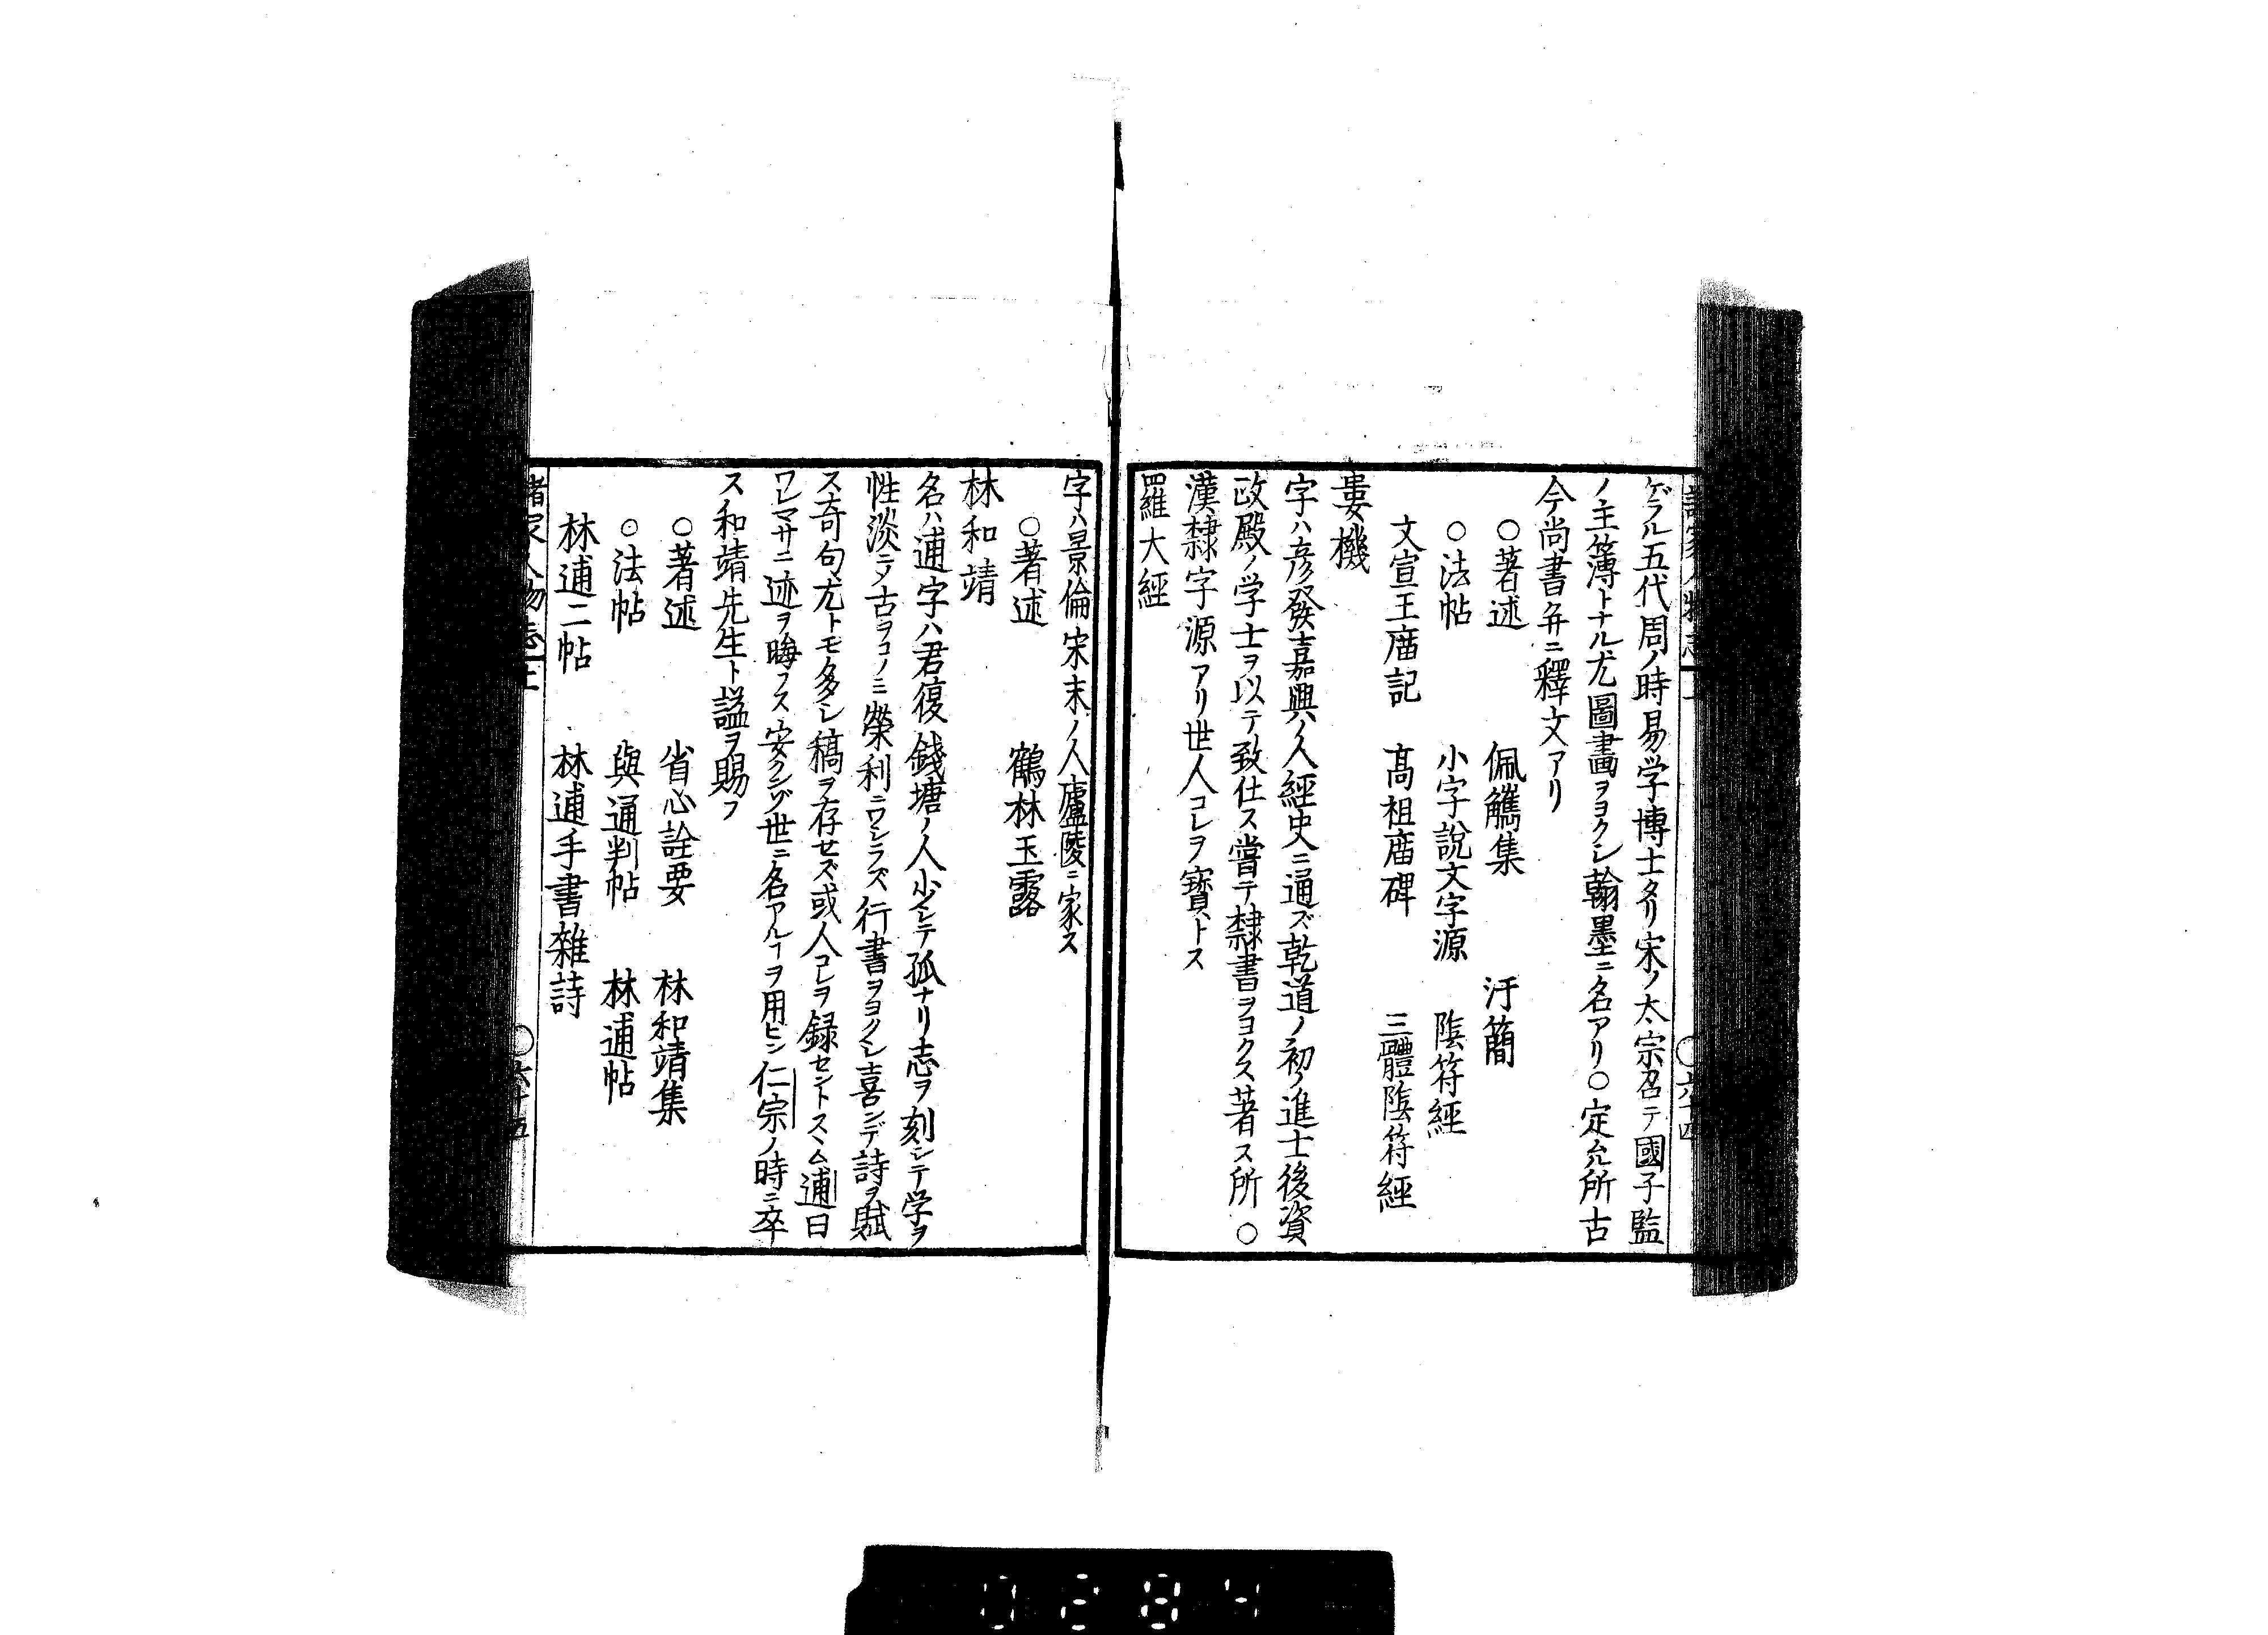 ゲラル五代周ノ時易学博士タリ宋ノ太宗召テ國子監
ノ主簿トナル尤圖畫ヲヨクシ翰墨ニ名アリ○定允所古
今尚書弁ニ釋文アリ
○著述　佩觿集　汗簡
○法帖　小字說文字源　陰符經
文宣王庿記　髙祖庿碑　三體陰符經
婁機
字ハ彦發嘉興ノ人經史ニ通ズ乾道ノ初ノ進士後資
政殿ノ学士ヲ以テ致仕ス嘗テ隸書ヲヨクス著ス所○
漢隸字源アリ世人コレヲ寳トス
羅大經
字ハ景倫宋末ノ人廬陵ニ家ス
○著述　鶴林玉露
林和靖
名ハ逋字ハ君復錢塘ノ人少シテ孤ナリ志ヲ刻シテ学ヲ
性淡ニテ古ヲコノミ榮利ニワシラズ行書ヲヨクシ喜ンデ詩ヲ賦
ス奇句尤トモ多シ稿ヲ存セズ或人コレヲ録セントスヽム逋曰
ワレマサニ迹ヲ晦フス安クンゾ世ニ名アルヿヲ用ヒン仁宗ノ時ニ卒
ス和靖先生ト諡ヲ賜フ
○著述　省心詮要　林和靖集
○法帖　與通判帖　林逋帖
林逋二帖　林逋手書雜詩
諸家人物志上　○六十五